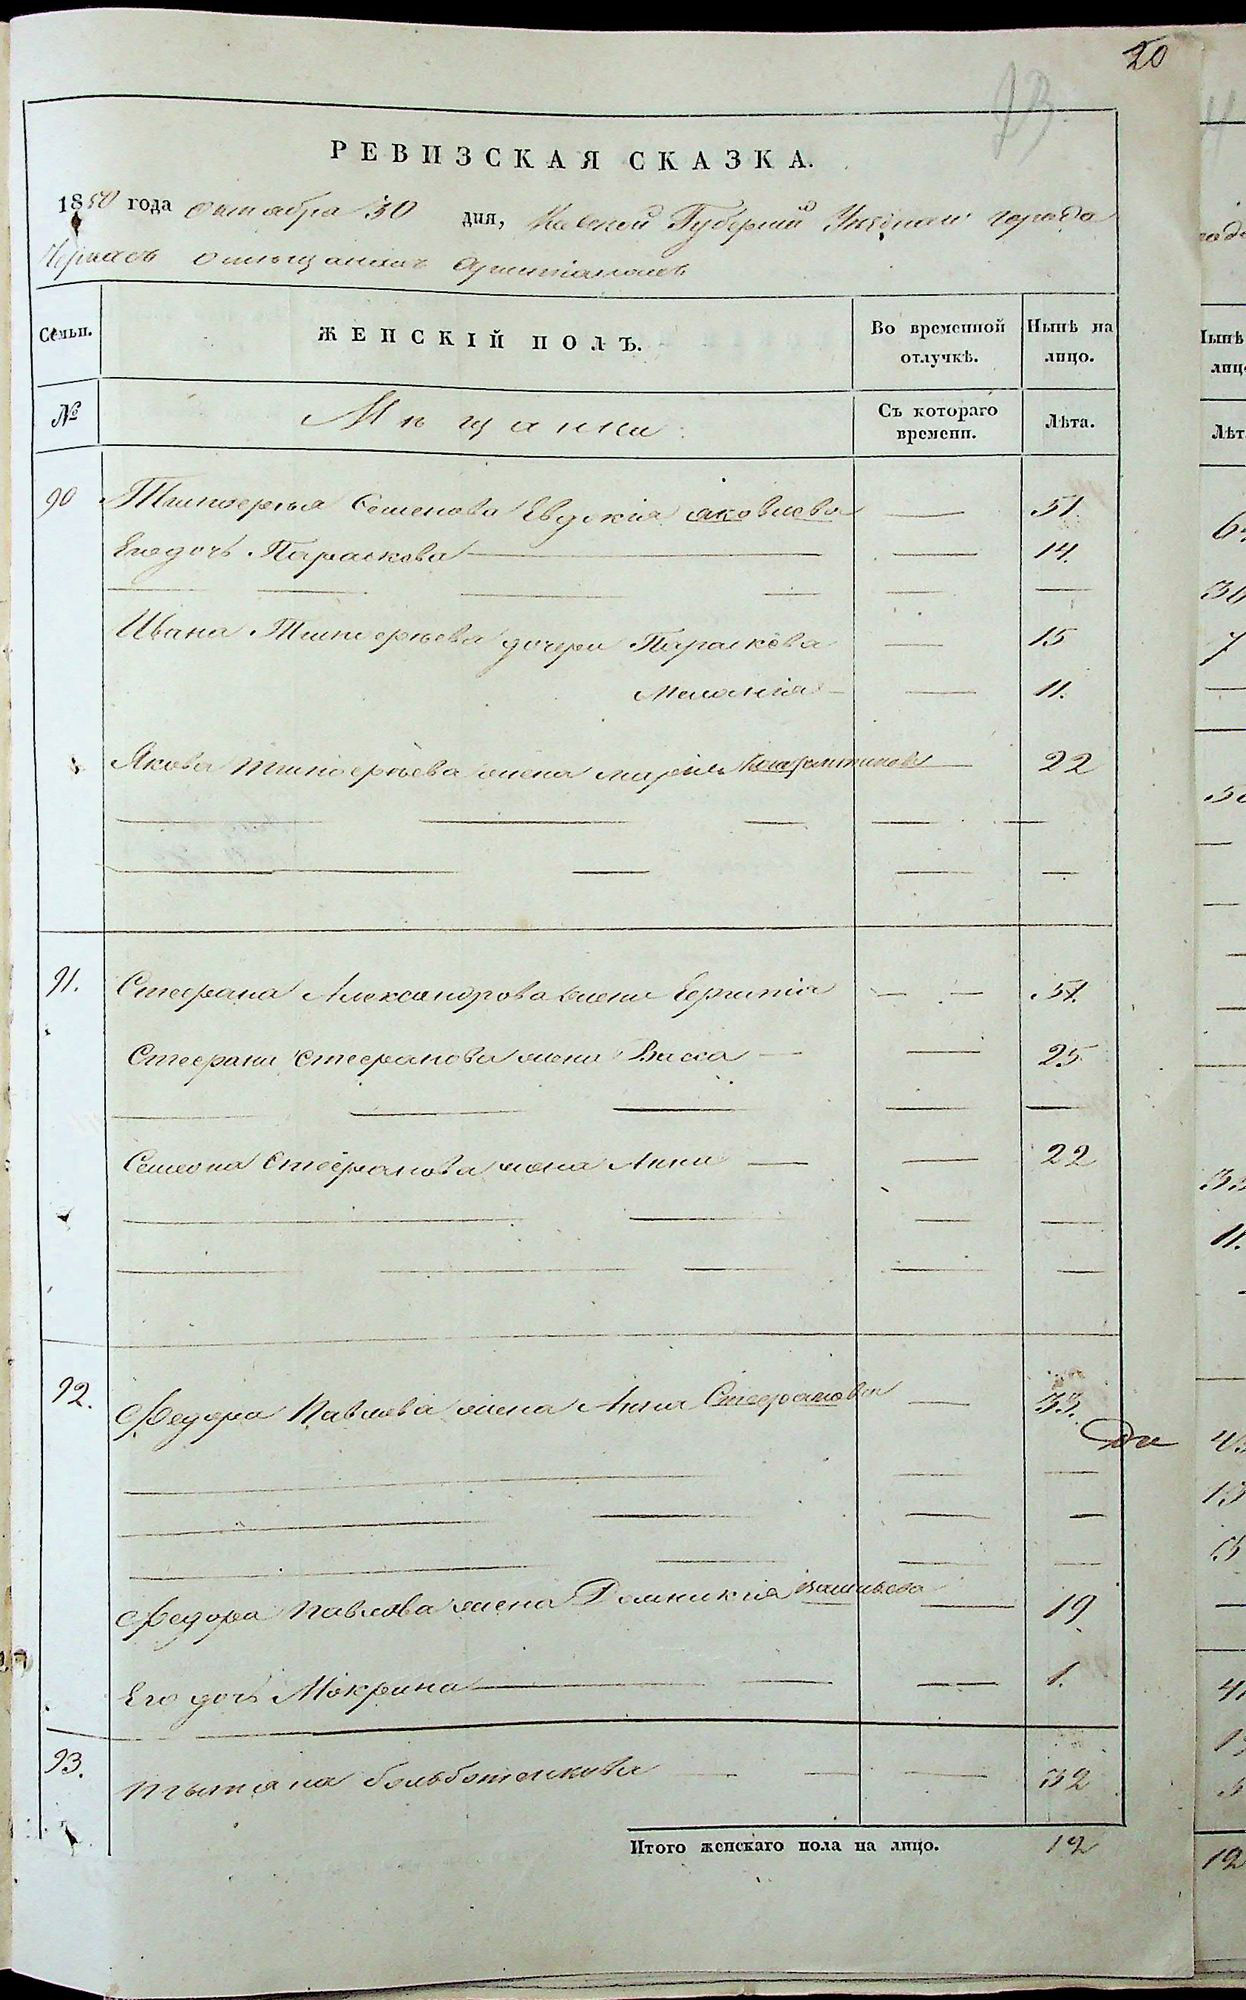 20
23
РЕВИЗСКАЯ СКАЗКА.
1850 года октября 30 дня, Киевской Губернии Уезднаго города
Черкас о мещанах христианах
Семьи. ЖЕНСКІЙ ПОЛЪ. Во временной отлучкѣ. Нынѣ на лицо.
№ Мѣщанки Съ котораго времени. Лѣта.
90 Тимофея Семенова Евдокія Яковлева — 51
Его дочь Параскева — 14.
Ивана Тимофеева дочери Параскева — 15
Меланія — 11.
Якова Тимофеева жена Марія — 22
91. Стефана Александрова жена — 51.
Стефана Стефанова жена Васса — 25
Семена Стефанова жена Анна — 22
92. Федора Павлова жена Анна Стефанова — 33.
Федора Павлова жена Домникія Васильева — 19
Его дочь Мокрина — 1.
93. Татьяна — 32
Итого женскаго пола на лицо. 12